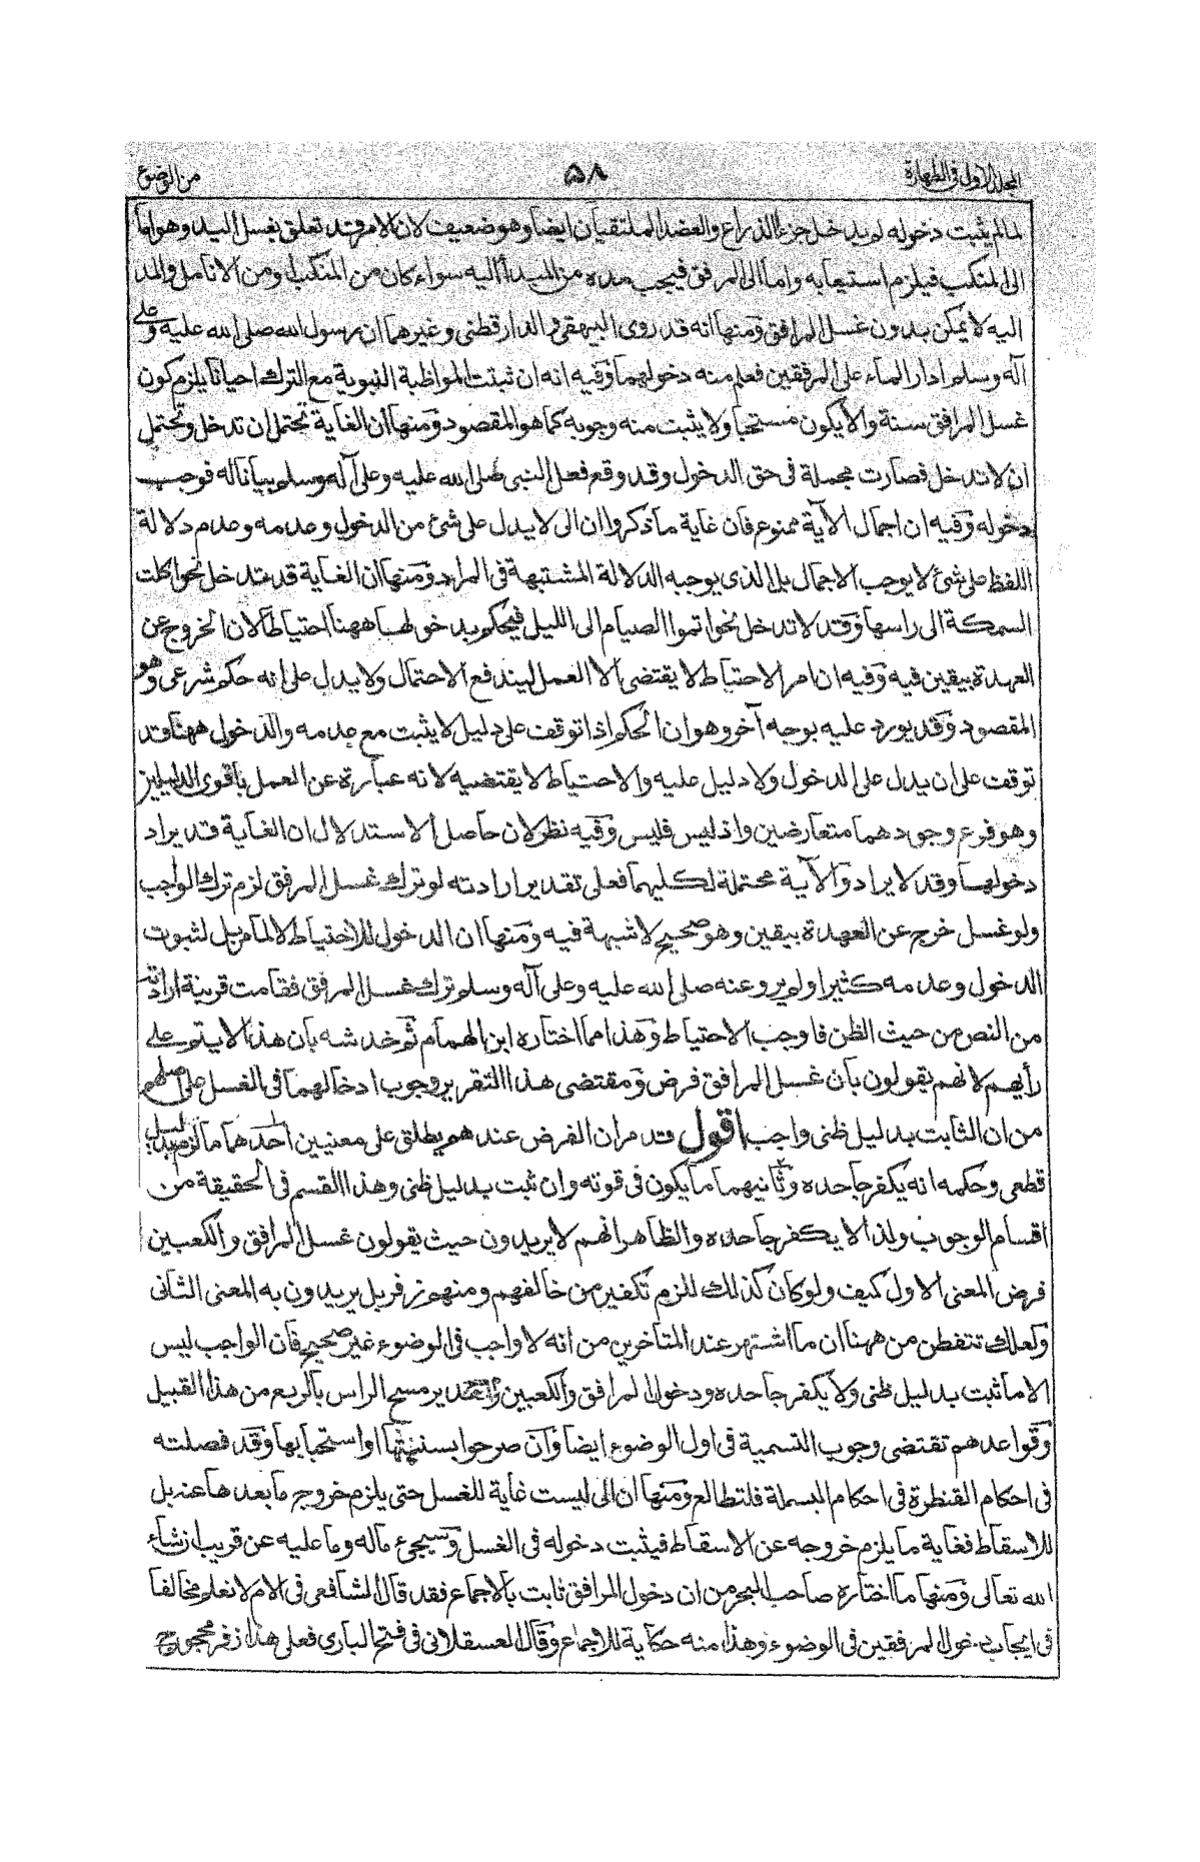 المجلد الاول في الطهارة
٥٨
من الوضوء
مالم يثبت دخوله لم يدخل جزءا الذراع والعضد الملتقيان ايضا وهو ضعيف لان الامر قد تعلق بغسل اليد وهو اما
الى المنكب فيلزم استيعابه واما الى المرفق فيجب مده من المبدأ اليه سواء كان من المنكب او من الانامل والمد
اليه لا يمكن بدون غسل المرافق ومنها انه قد روى البيهقي والدارقطني وغيرهما ان رسول الله صلى الله عليه وعلى
آله وسلم ادار الماء على المرفقين فعلم منه دخولهما وفيه انه ان ثبتت المواظبة النبوية مع الترك احيانا يلزم كون
غسل المرافق سنة والا يكون مستحبا ولا يثبت منه وجوبه كما هو المقصود ومنها ان الغاية تحتمل ان تدخل وتحتمل
ان لا تدخل فصارت مجملة في حق الدخول وقد وقع فعل النبي صلى الله عليه وعلى آله وسلم بيانا له فوجب
دخوله وفيه ان اجمال الآية ممنوع فان غاية ما ذكروا ان الى لا يدل على شئ من الدخول وعدمه وعدم دلالة
اللفظ على شئ لا يوجب الاجمال بل الذي يوجبه الدلالة المشتبهة في المراد ومنها ان الغاية قد تدخل نحو اكلت
السمكة الى راسها وقد لا تدخل نحو اتموا الصيام الى الليل فيحكم بدخولها ههنا احتياطا لان الخروج عن
العهدة بيقين فيه وفيه ان امر الاحتياط لا يقتضى الا العمل ليندفع الاحتمال ولا يدل على انه حكم شرعى وهو
المقصود وقد يورد عليه بوجه آخر وهو ان الحكم اذا توقف على دليل لا يثبت مع عدمه والدخول ههنا قد
توقف على ان يدل على الدخول ولا دليل عليه والاحتياط لا يقتضيه لانه عبارة عن العمل باقوى الدليلين
وهو فرع وجودهما متعارضين واذ ليس فليس وفيه نظر لان حاصل الاستدلال ان الغاية قد يراد
دخولها وقد لا يراد والآية محتملة لكليهما فعلى تقدير ارادته لو ترك غسل المرفق لزم ترك الواجب
ولو غسل خرج عن العهدة بيقين وهو صحيح لا شبهة فيه ومنها ان الدخول للاحتياط لا لما مر بل لثبوت
الدخول وعدمه كثيرا ولم يرو عنه صلى الله عليه وعلى آله وسلم ترك غسل المرفق فقامت قرينة ارادته
من النص من حيث الظن فاوجب الاحتياط وهذا مما اختاره ابن الهمام ثم خدشه بان هذا لا يتم على
رأيهم لانهم يقولون بان غسل المرافق فرض ومقتضى هذا التقرير وجوب ادخالهما في الغسل على اصلهم
من ان الثابت بدليل ظنى واجب اقول قد مر ان الفرض عندهم يطلق على معنيين احدهما ما لزم بدليل
قطعى وحكمه انه يكفر جاحده وثانيهما ما يكون في قوته وان ثبت بدليل ظنى وهذا القسم في الحقيقة من
اقسام الوجوب ولذا لا يكفر جاحده والظاهر انهم لا يريدون حيث يقولون غسل المرافق والكعبين
فرض المعنى الاول كيف ولو كان كذلك للزم تكفير من خالفهم ومنهم زفر بل يريدون به المعنى الثانى
ولعلك تتفطن من ههنا ان ما اشتهر عند المتاخرين من انه لا واجب في الوضوء غير صحيح فان الواجب ليس
الا ما ثبت بدليل ظنى ولا يكفر جاحده ودخول المرافق والكعبين وتقدير مسح الراس بالربع من هذا القبيل
وقواعدهم تقتضى وجوب التسمية في اول الوضوء ايضا وان صرحوا بسنيتها او استحبابها وقد فصلته
في احكام القنطرة في احكام البسملة فلتطالع ومنها ان الى ليست غاية للغسل حتى يلزم خروج ما بعدها عنه بل
للاسقاط فغاية ما يلزم خروجه عن الاسقاط فيثبت دخوله في الغسل وسيجئ ماله وما عليه عن قريب انشاء
الله تعالى ومنها ما اختاره صاحب البحر من ان دخول المرافق ثابت بالاجماع فقد قال الشافعى في الام لا نعلم مخالفا
في ايجاب دخول المرفقين في الوضوء وهذا منه حكاية للاجماع وقال العسقلانى في فتح البارى فعلى هذا زفر محجوج